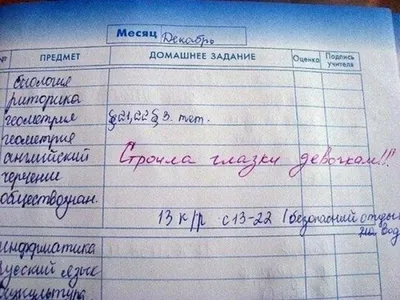 Месяц Декабрь
№ ПРЕДМЕТ ДОМАШНЕЕ ЗАДАНИЕ Оценка Подпись учителя
биология
риторика
геометрия §21,22 § 3. тет.
геометрия
английский Строила глазки девочкам!!!
черчение
обществознан.
13 к/р с 13-22 Безопасный отдых на вод
информатика
русский язык
физкультура